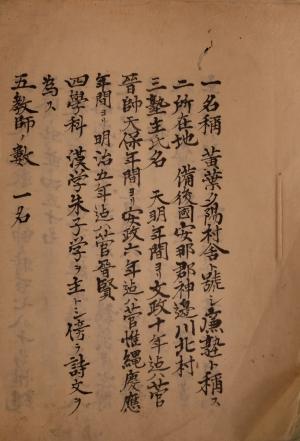 一名稱 黄葉夕陽村舎ト號シ廉塾ト稱ス
二所在地 備後國安那郡神邊川北村
三塾主氏名 天明年間ヨリ文政十年迠ハ菅
晉帥天保年間ヨリ安政六年迠ハ菅惟縄慶應
年間ヨリ明治五年迠ハ菅晉賢
四學科 漢学朱子学ヲ主トシ傍ラ詩文ヲ
為ス
五教師ノ數 一名